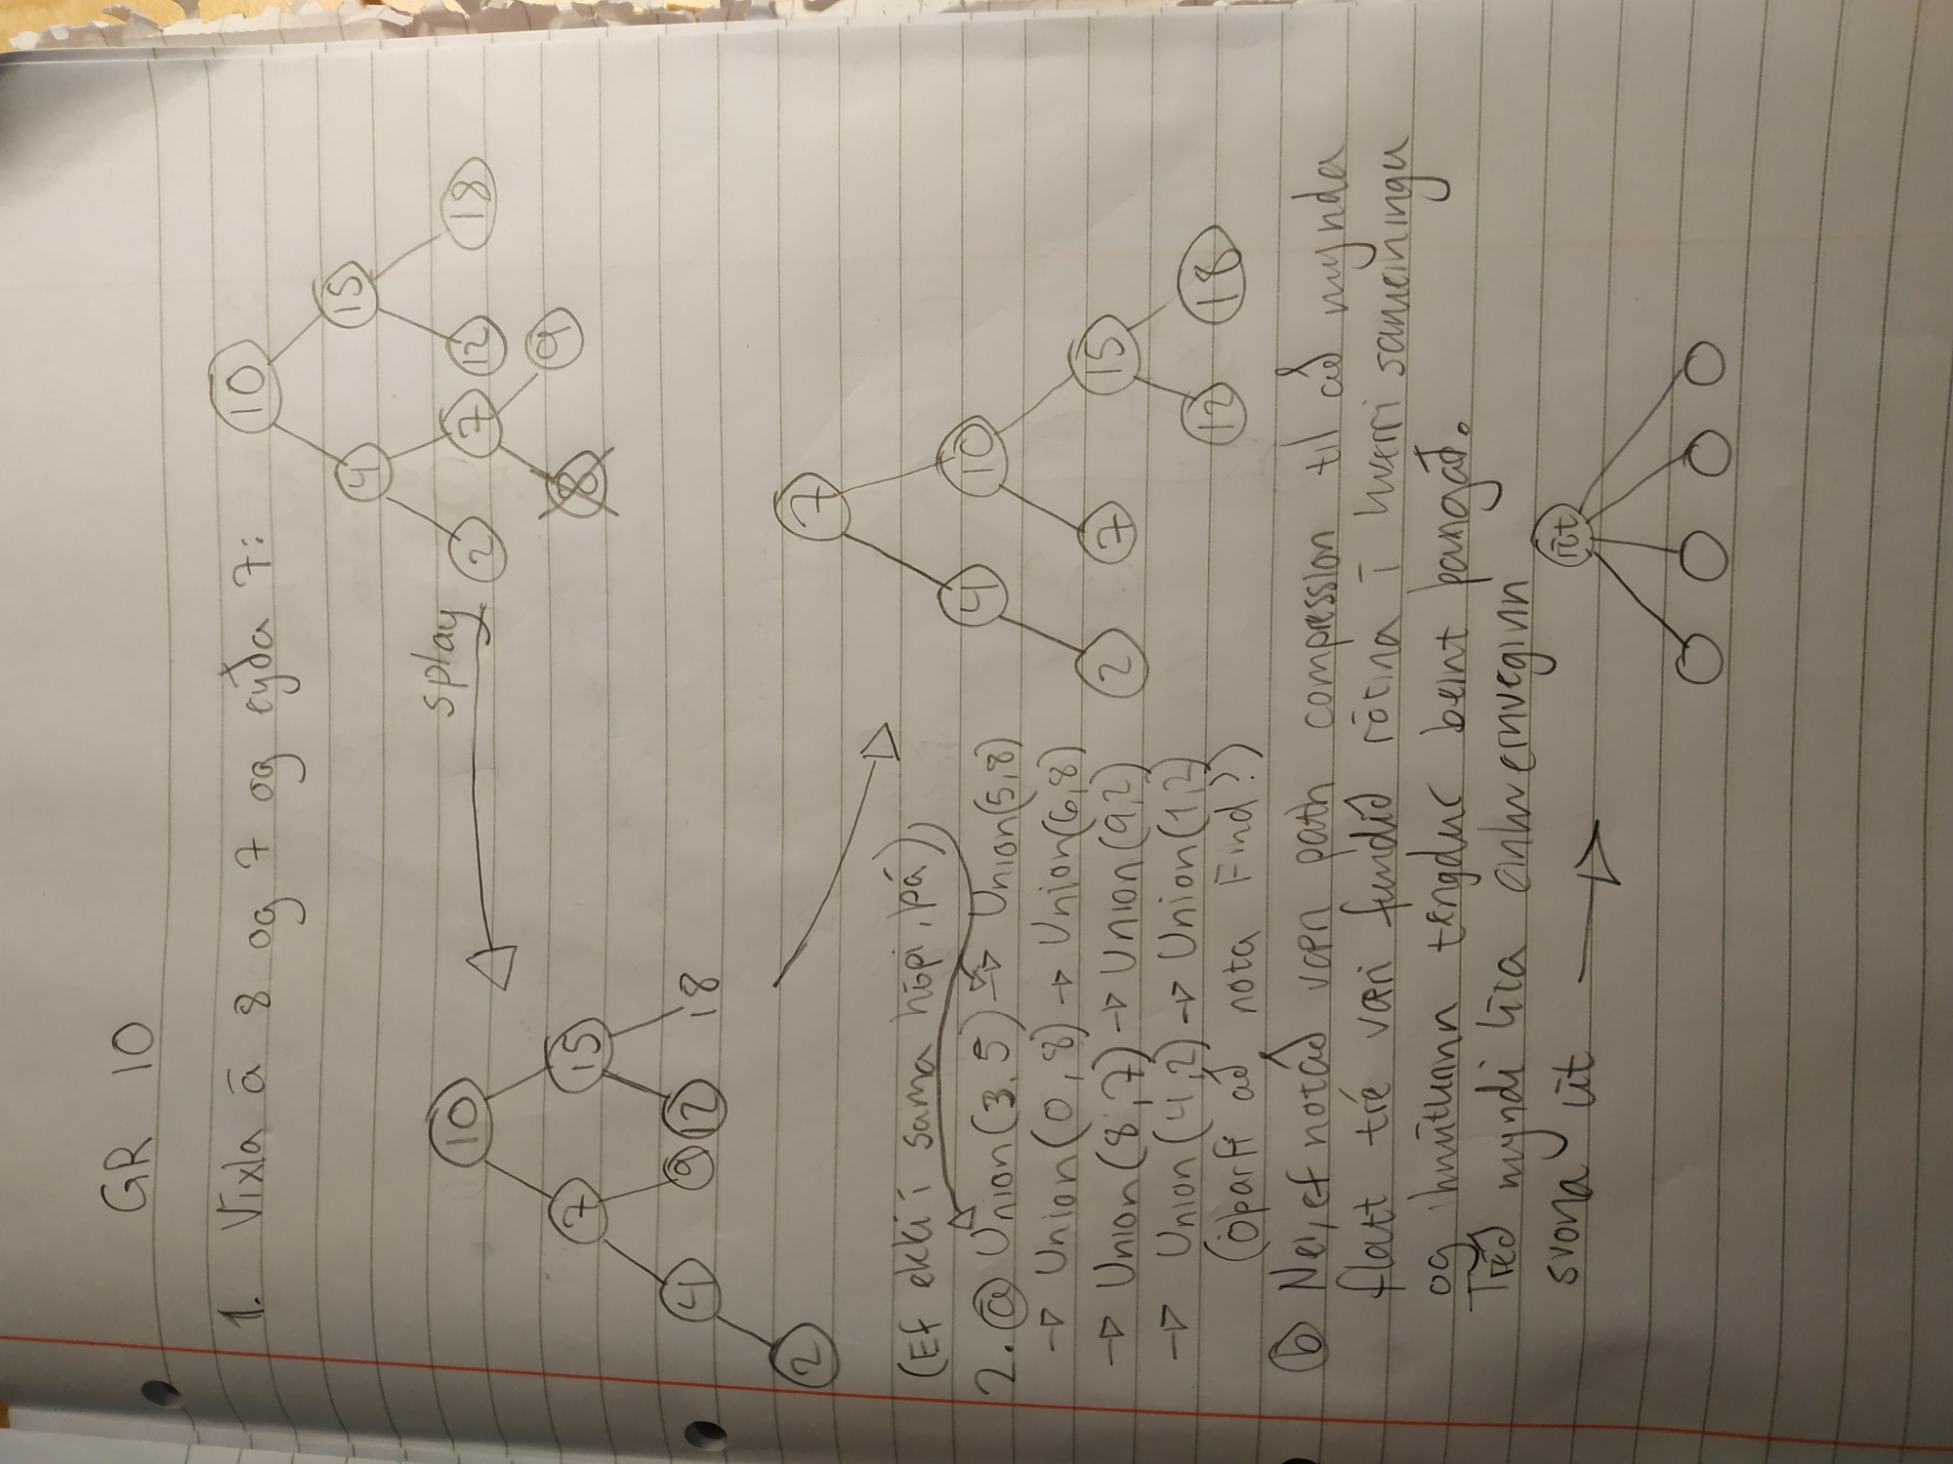 GR 10
1. Víxla á 8 og 7 og eyða 7:
10
4 15
2 7 12 18
8 9
splay
10
7 15
4 9 12 18
2
7
4 10
2 7 15
12 18
(Ef ekki í sama hópi, þá)
2. a Union(3,5) → Union(5,8)
→ Union(0,8) → Union(6,8)
→ Union(8,7) → Union(9,2)
→ Union(4,2) → Union(1,2)
(óþarfi að nota Find?)
b Nei, ef notað væri path compression til að mynda
flatt tré væri fundið rótina í hverri sameiningu
og hnúturinn tengdur beint þangað.
Tréð myndi líta einhvernveginn
svona út →
rót